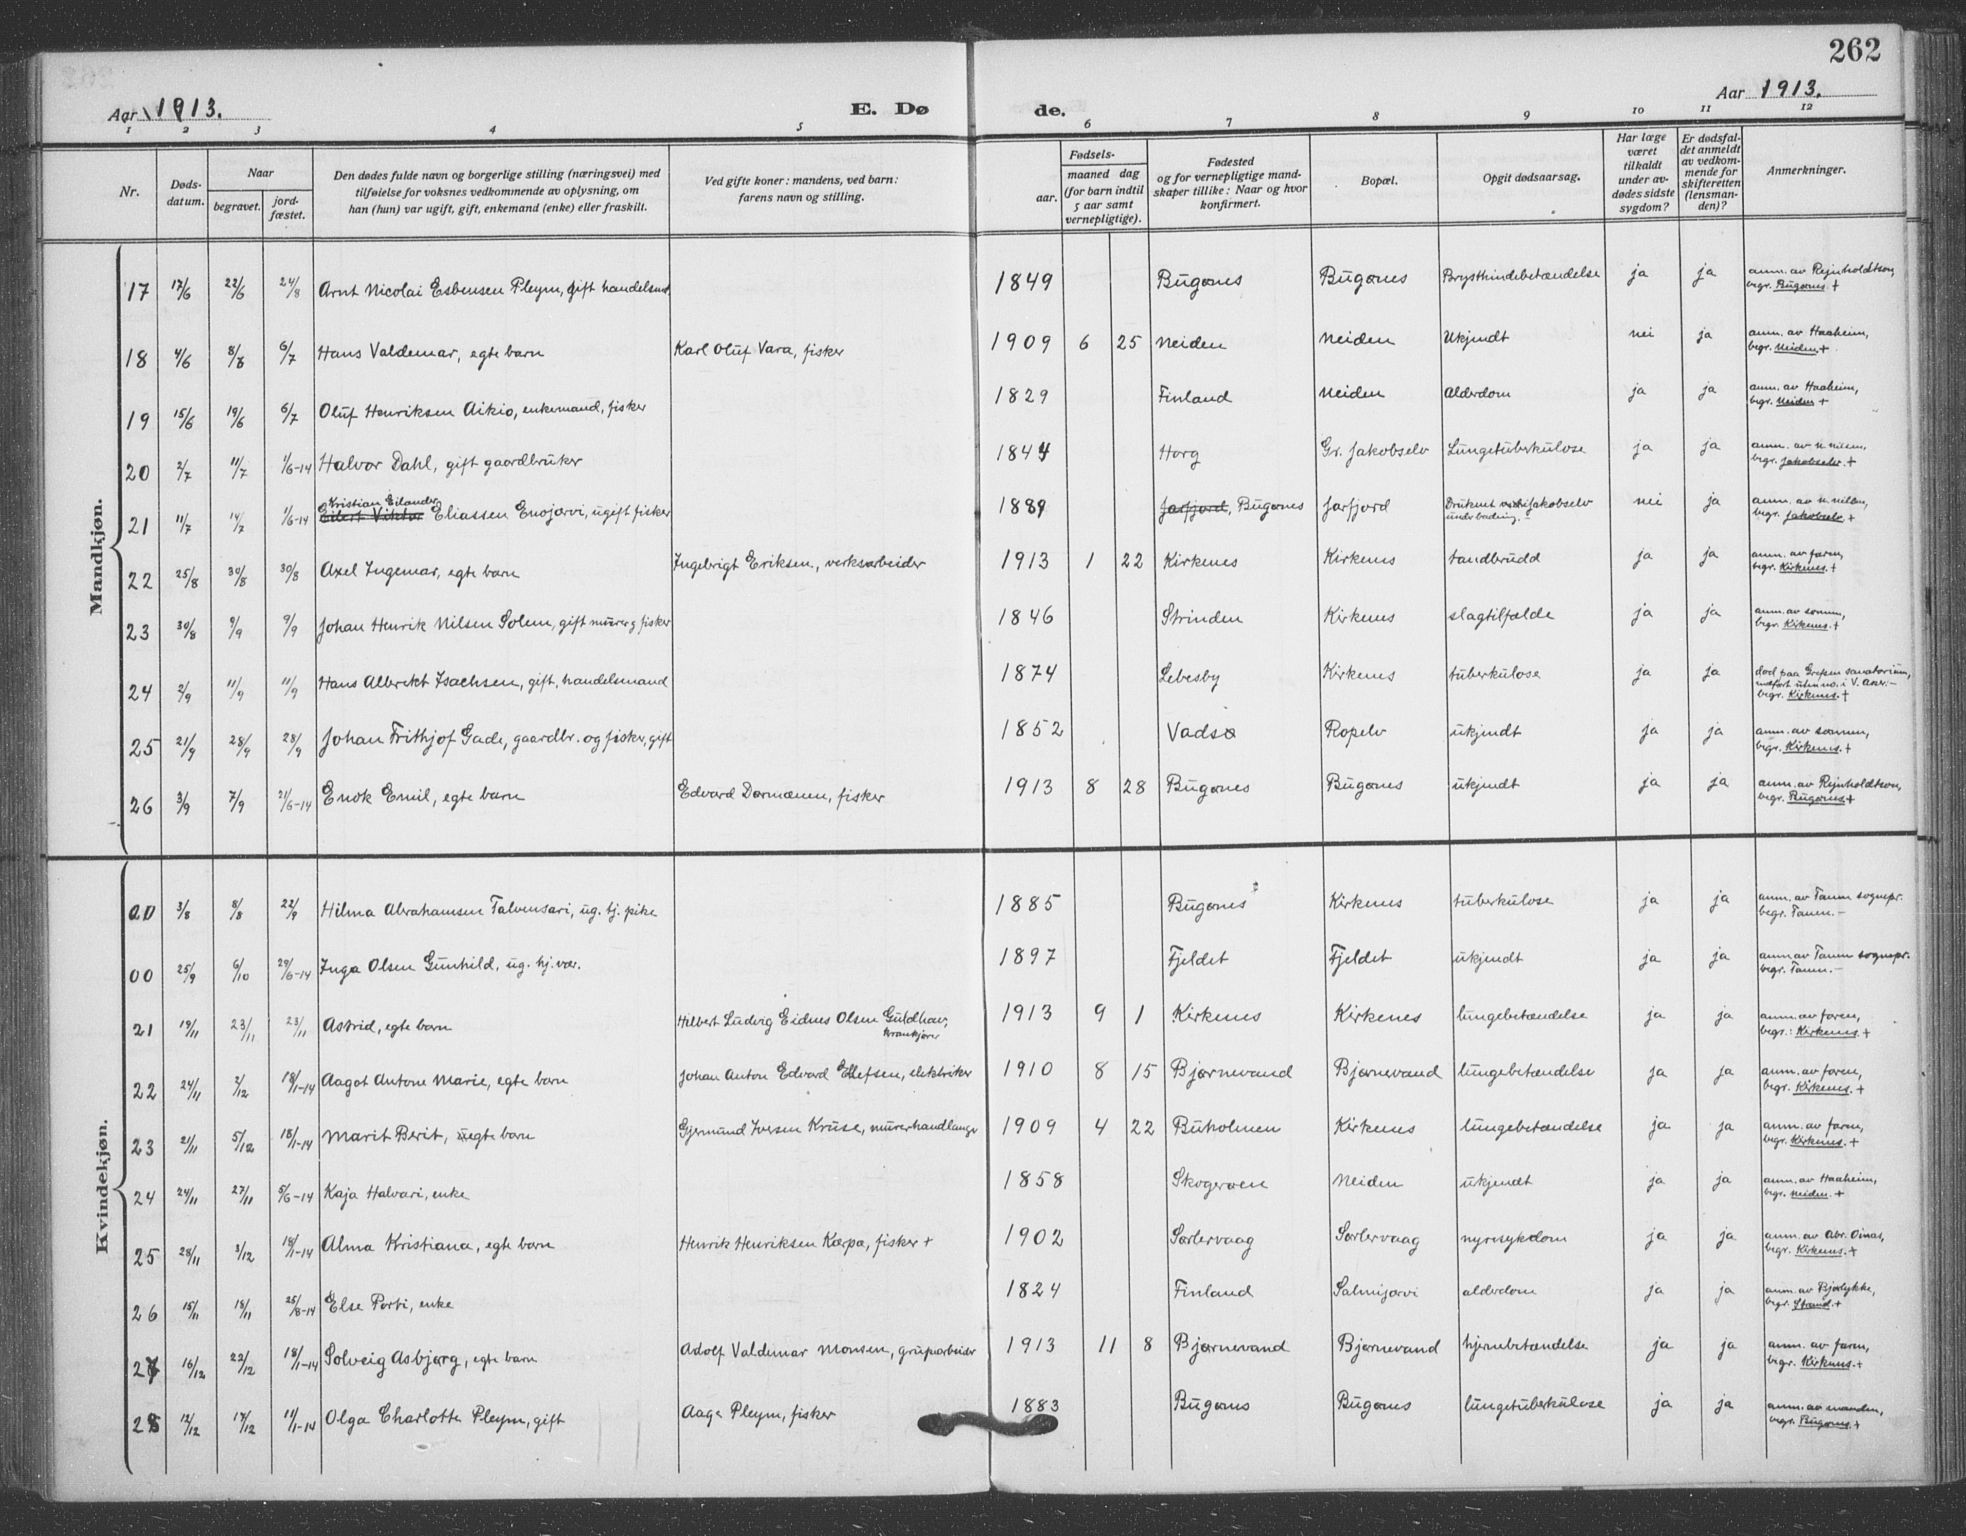 262
Aar 1913.
E. Døde.
Aar 1913.
1 2 3 4 5 6 7 8 9 10 11 12
Nr.
Døds-datum.
Naar
begravet.
jord-fæstet.
Den dødes fulde navn og borgerlige stilling (næringsvei) med
tilføielse for voksnes vedkommende av oplysning, om
han (hun) var ugift, gift, enkemand (enke) eller fraskilt.
Ved gifte koner: mandens, ved barn:
farens navn og stilling.
Fødsels-
aar.
maaned dag
(for barn indtil
5 aar samt
vernepligtige).
Fødested
og for vernepligtige mand-
skaper tillike: Naar og hvor
konfirmert.
Bopæl.
Opgit dødsaarsag.
Har læge
været
tilkaldt
under av-
dødes sidste
sygdom?
Er dødsfal-
det anmeldt
av vedkom-
mende for
skifteretten
(lensman-
den)?
Anmerkninger.
Mandkjøn.
17 17/6 22/6 24/8 Arnt Nicolai Esbensen Pleym, gift handelsm. 1849 Bugønes Bugønes Brysthindebetændelse ja ja anm. av Reinholdtsen, begr. Bugønes. +
18 4/6 8/6 6/7 Hans Valdemar, egte barn Karl Oluf Vara, fisker 1909 6 25 Neiden Neiden Ukjendt nei ja anm. av Haaheim, begr. Neiden. +
19 15/6 19/6 6/7 Oluf Henriksen Aikio, enkemand, fisker 1829 Finland Neiden Alderdom ja ja anm. av Haaheim, begr. Neiden +
20 2/7 11/7 1/6-14 Halvor Dahl, gift gaardbruker 1844 Horg Gr. Jakobselv Lungetuberkulose ja ja anm. av N. Nilsen, begr. Jakobselv. +
21 11/7 14/7 1/6-14 Kristian Eilander Eilert Viktor Eliassen Enojarvi, ugift fisker 1889 Jarfjord, Bugønes Jarfjord Druknet i Jakobselv under badning. nei ja anm. av N. Nilsen, begr. Jakobselv +
22 25/8 30/8 30/8 Axel Ingemar, egte barn Ingebrigt Eriksen, verksarbeider 1913 1 22 Kirkenes Kirkenes tandbrudd ja ja anm. av faren, begr. Kirkenes. +
23 30/8 9/9 9/9 Johan Henrik Nilsen Solem, gift murer g fisker 1846 Strinden Kirkenes slagtilfælde ja ja anm. av sønnen, begr. Kirkenes. +
24 2/9 11/9 11/9 Hans Albrekt Isachsen, gift, handelsmand 1874 Lebesby Kirkenes tuberkulose ja ja død paa Grefsen sanatorium, indført uten no. i V. Aker. – begr. Kirkenes. +
25 21/9 28/9 28/9 Johan Frithjof Gade, gaardbr. og fisker, gift 1852 Vadsø Ropelv ukjendt ja ja anm. av sønnen, begr. Kirkenes. +
26 3/9 7/9 21/6-14 Enok Emil, egte barn Edvard Dørmænen, fisker 1913 8 28 Bugønes Bugønes ukjendt ja ja anm. av Reinholdtsen, begr. Bugønes +
Kvindekjøn.
00 3/8 8/8 22/9 Hilma Abrahamsen Talvensari, ug. tj. pike 1885 Bugønes Kirkenes tuberkulose ja ja anm. av Tanen sognepr. begr. Tanen. –
00 25/9 6/10 29/6-14 Inga Olsen Gunhild, ug. hj. vær. 1897 Fjeldet Fjeldet ukjendt ja ja anm. av Tanen sognepr. begr. Tanen. –
21 19/11 23/11 23/11 Astrid, egte barn Hilbert Ludvig Eidnes Olsen Guldhav, krankjører 1913 9 1 Kirkenes Kirkenes lungebetændelse ja ja anm. av faren, begr.: Kirkenes. +
22 24/11 2/12 18/1-14 Aagot Antone Marie, egte barn Johan Anton Edvard Ellefsen, elektriker 1910 8 15 Bjørnevand Bjørnevand lungebetændelse ja ja anm. av faren, begr. Kirkenes. +
23 21/11 5/12 18/1-14 Marit Berit, uegte barn Gjermund Iversen Kruse, murerhandlanger 1909 4 22 Buholmen Kirkenes lungebetændelse ja ja anm. av faren, begr. Kirkenes. +
24 24/11 27/11 5/6-14 Kaja Halvari, enke 1858 Skogerøen Neiden ukjendt ja ja anm. av Haaheim, begr. Neiden. +
25 28/11 3/12 18/1-14 Alma Kristiana, egte barn Henrik Henriksen Karpa, fisker + 1902 Sørlervaag Sørlervaag nyresykdom ja ja anm. av Abr. Oinas, begr. Kirkenes. +
26 15/11 18/11 25/8-14 Else Porti, enke 1824 Finland Salmijarvi alderdom ja ja anm. av Bjørlykke, begr. Strand. +
27 16/12 22/12 18/1-14 Solveig Asbjørg, egte barn Adolf Valdemar Monsen, grubarbeider 1913 11 8 Bjørnevand Bjørnevand hjernebetændelse ja ja anm. av faren, begr. Kirkenes. +
28 12/12 17/12 11/1-14 Olga Charlotte Pleym, gift Aage Pleym, fisker 1883 Bugønes Bugønes lungetuberkulose ja ja anm. av manden, begr. Bugønes. +